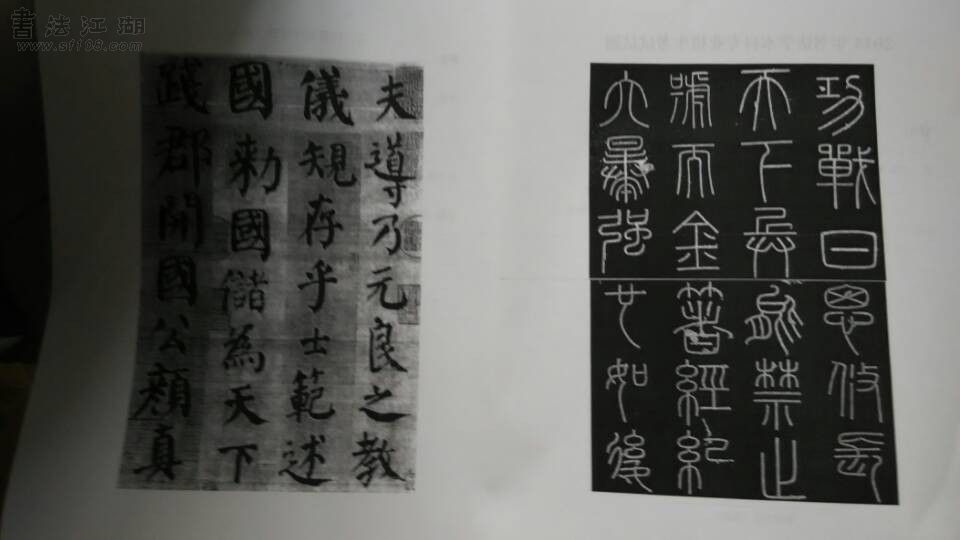 書法江湖
www.sf108.com
夫導乃元良之教
儀規存乎士範述
國勅國儲為天下
踐郡開國公顏真
功戰日恩攸長
天下兵禁止
號而金著經紀
六暴強廿如後